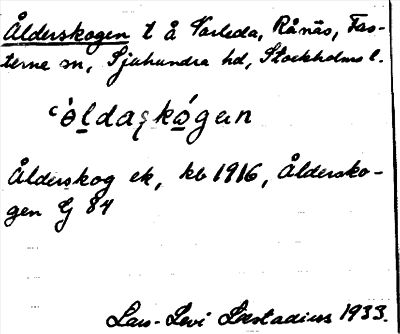 Ålderskogen t å Varleda, Rånäs, Fas-
terne sn, Sjuhundra hd, Stockholms l.
ˋåldaskógan
Ålderskog ek, kb 1916, Åldersko-
gen G 84
Lars-Levi Læstadius 1933.